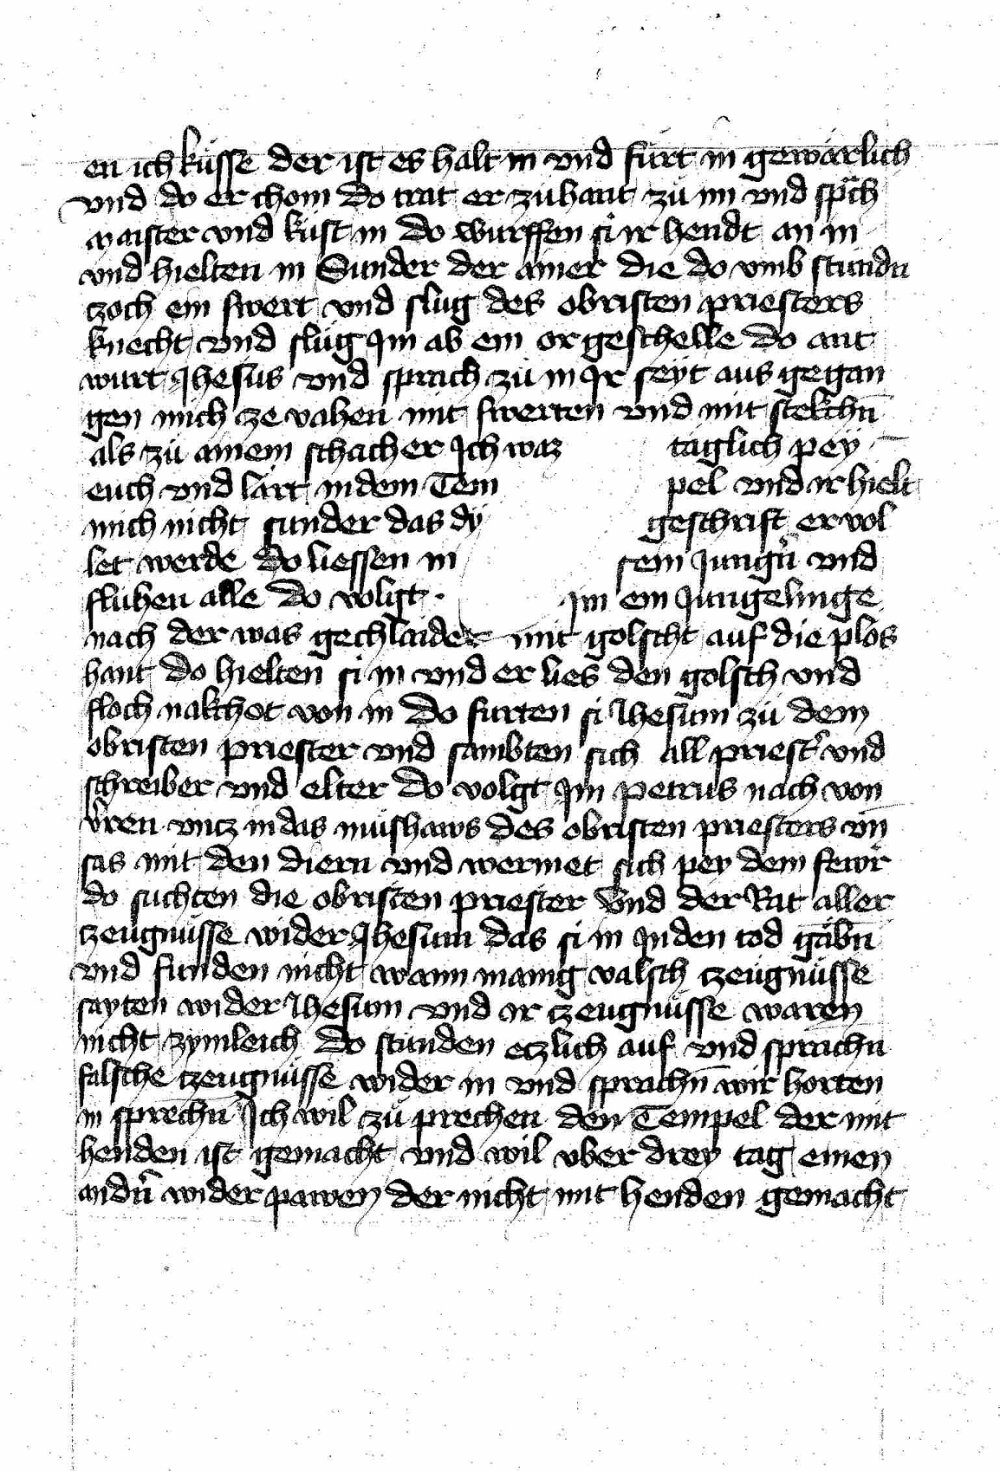 en ich küsse der ist es halt in vnd fürt in gewärlich
vnd do er chom do trat er zuhant zü im vnd sp̄ch
maister vnd küst in do wurffen si ir hendt an in
vnd hielten in Sunder der ainer die do vmb stundn
czoch ein swert vnd slug des obristen priesters
knecht vnd slug Im ab ein or geschelle do ant
wurt Jhesus vnd sprach zü in Ir seyt aus gegan
gen mich ze vahen mit swerten vnd mit stekchn̄
als zü ainem schacher Ich waz täglich pey
euch vnd lärt in dem Tem pel vnd ir hielt
mich nicht sunder das dy geschrift ervol
let werde do liessen in sein Jungn̄ vnd
fluhen alle do voligt Im ein Jungelinge
nach der was gechlaidet mit golscht auf die plos
haut do hielten si in vnd er lies den golsch vnd
floch nakchot von in Do furten si Jhesum zü dem
obristen priester vnd sambten sich all priest̉ vnd
schreiber vnd elter Do volgt Im petrus nach von
v̉ren vncz in das mushaws des obristen priesters vn̄
sas mit den diern vnd wermet sich pey dem fewr
do suchten die obristen priester Vnd der Rat aller
czeugnüsse wider Jhesum das si in Inden tod gäbn̄
vnd funden nicht wann manig valsch czeugnüsse
sayten wider Jhesum vnd ir czeugnüsse waren
nicht zymleich Do stunden etzlich auf vnd sprachn̄
falsche czeugnüsse wider in vnd sprachn̄ wir horten
in sprechn̄ Ich wil zü prechen den Tempel der mit
henden ist gemacht vnd wil vber drey tag einen
andn̉ wider pawen der nicht mit henden gemacht